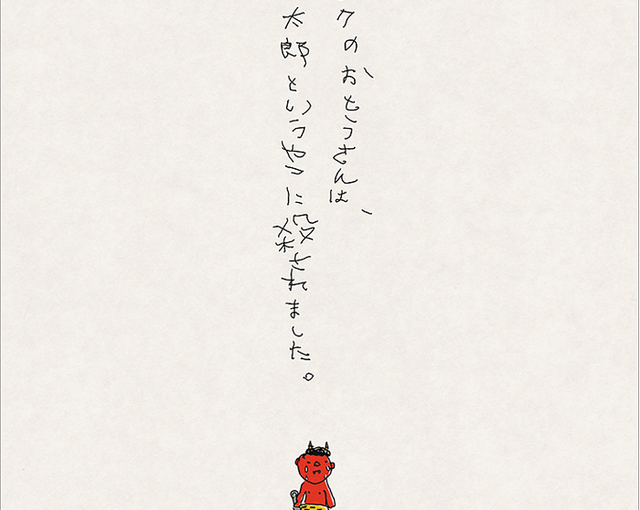 クのおとうさんは、
太郎というやつに殺されました。